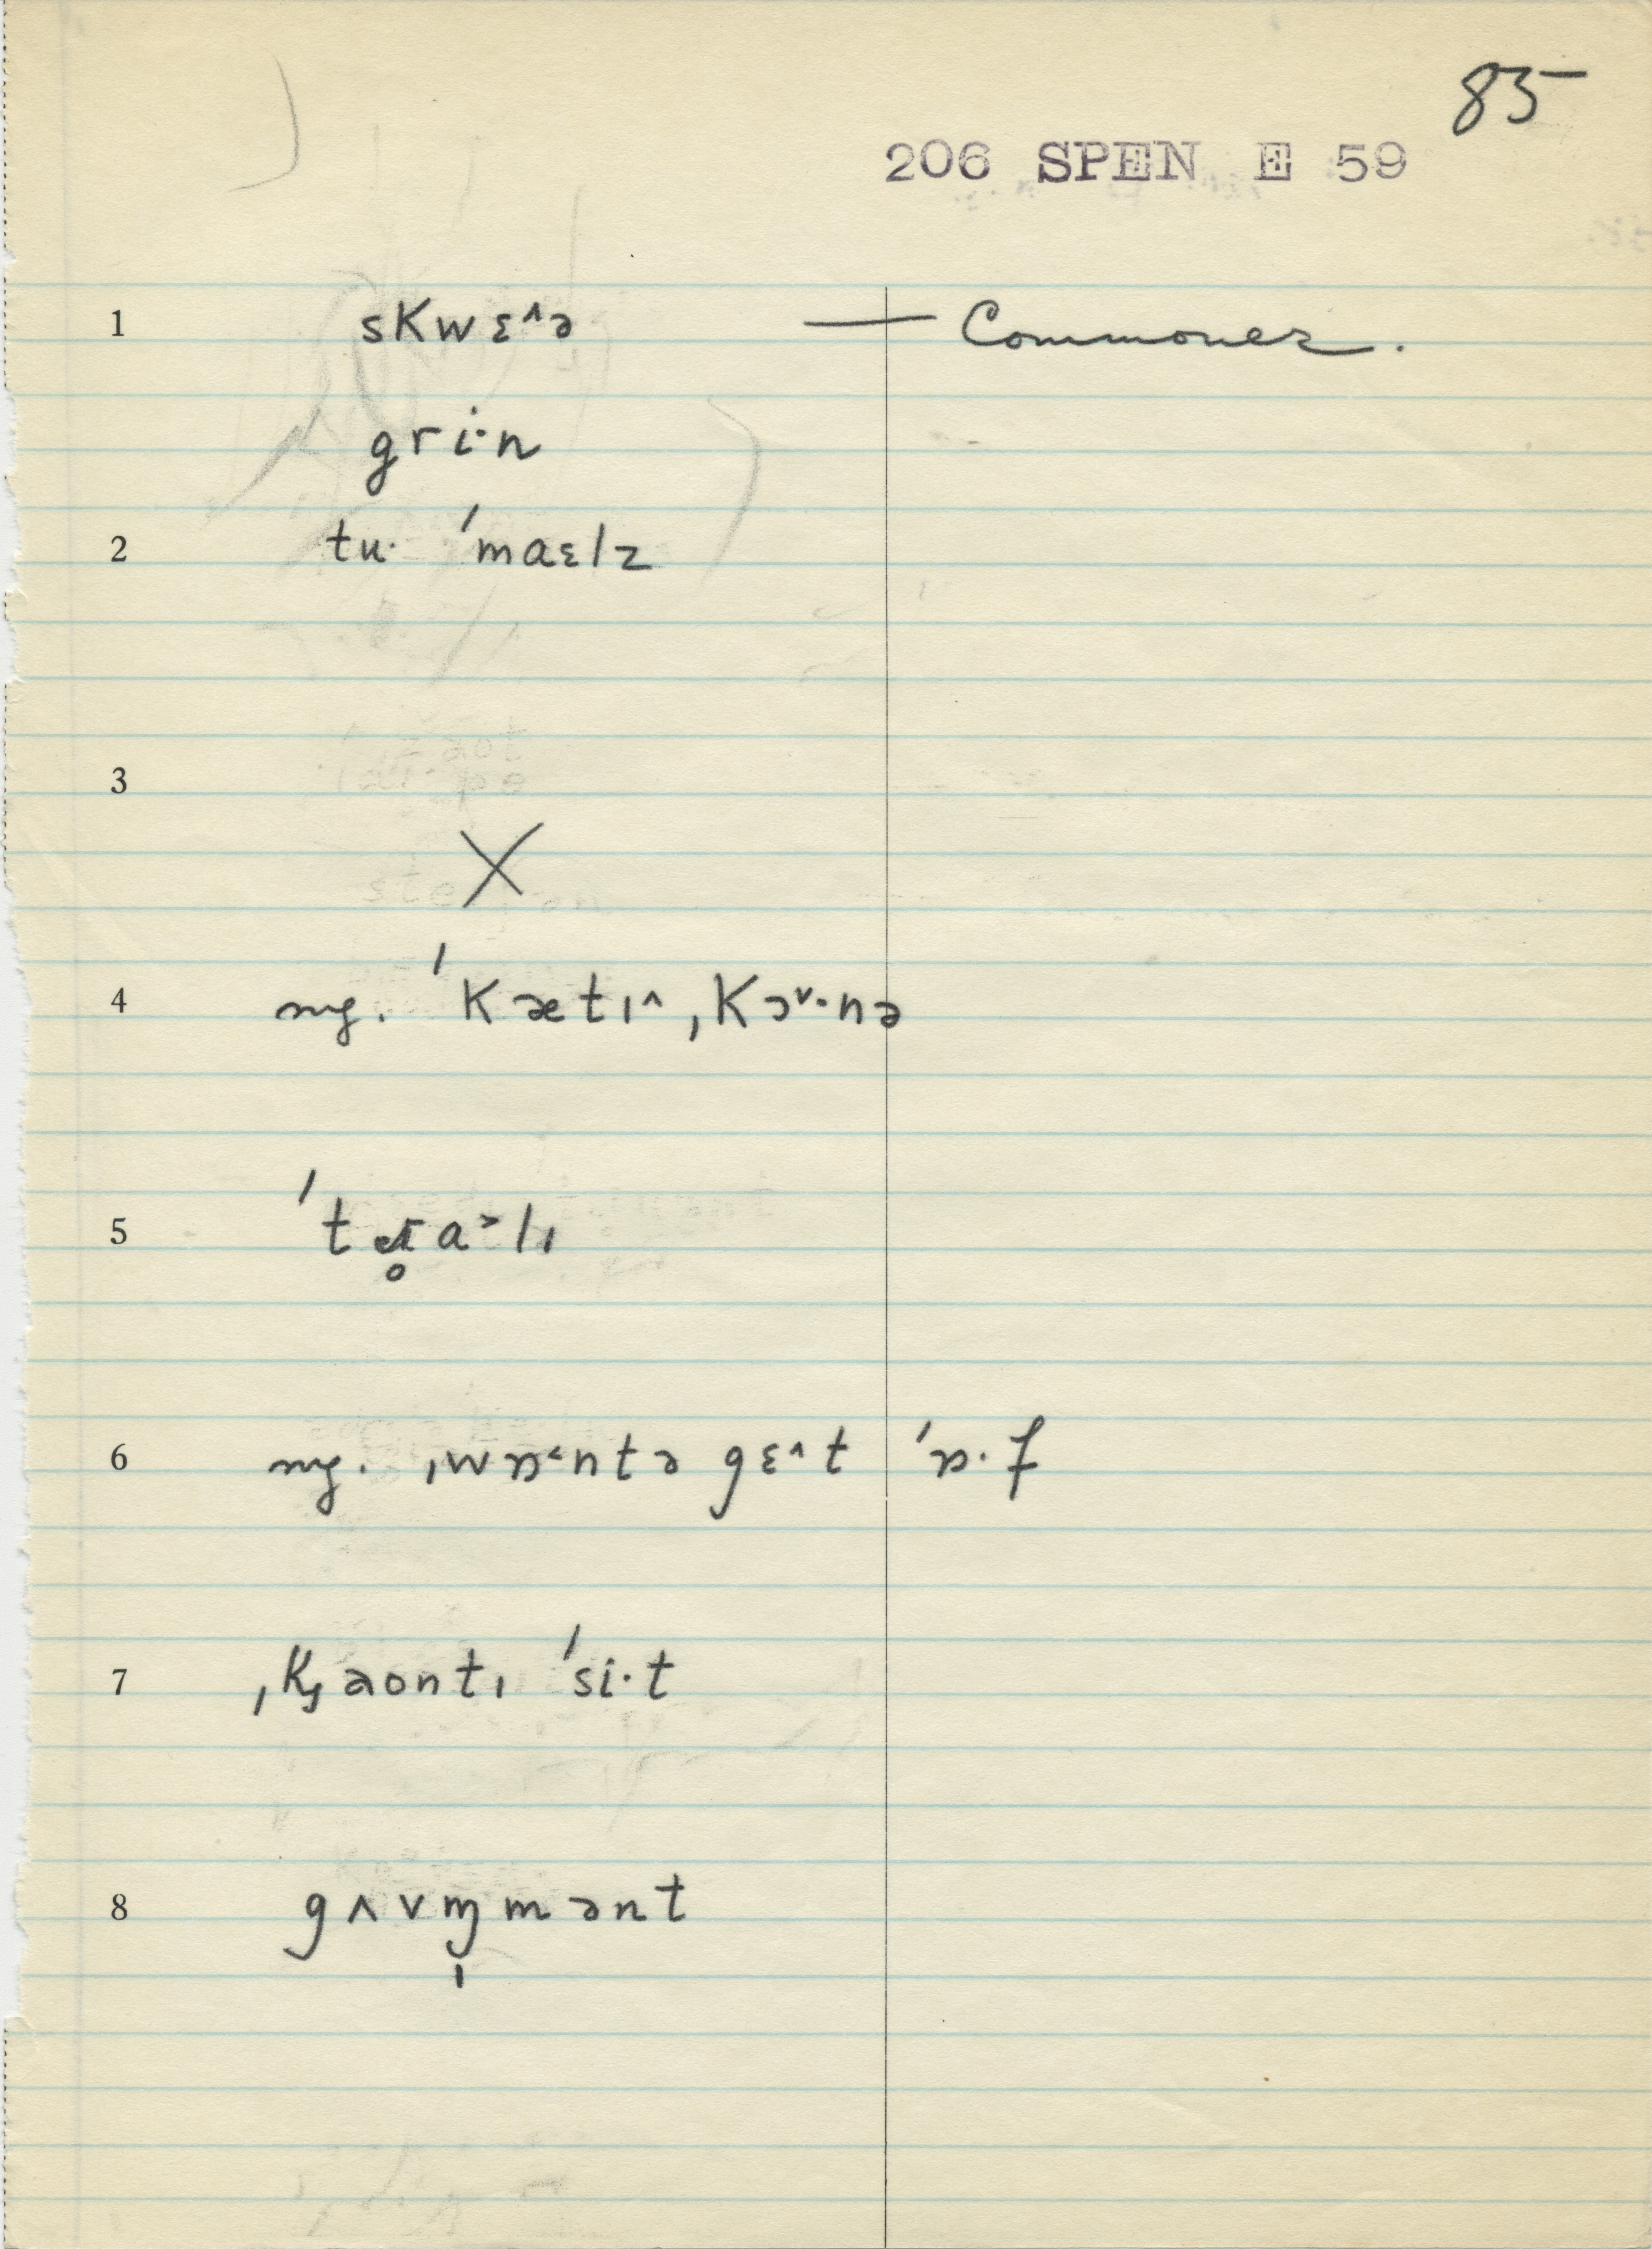 85
206 SPEN E 59
1 skwɛ^ə — Commoner.
gri·n
2 tu· ˈmaɛlz
3
X
4 ng. ˈkætɪ^ ˌkɔ˅·nə
5 ˈt r̥a˃lɪ
6 ng. ˌwɒ˂ntə gɛ^t ˈɒ·f
7 ˌkjaontɪ ˈsi·t
8 gʌvm̩mənt